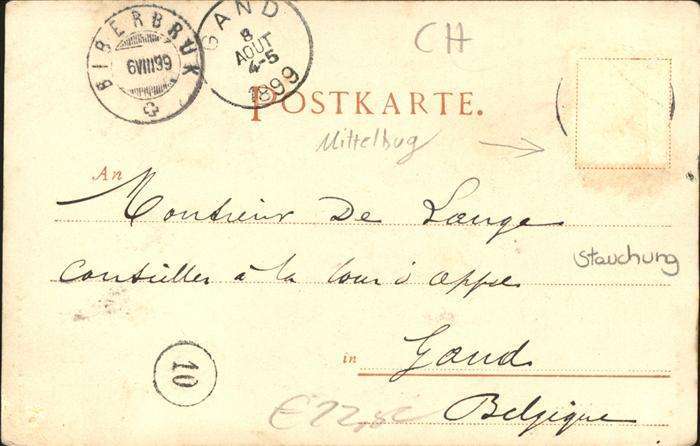 BIBERBRUK
6 VIII 99
GAND
8
AOUT
4-5
1899
CH
POSTKARTE.
Mittelbug
An
Monsieur De Lange
Stauchung
Conseiller à la Cour d'appel
10
in Gand
Belgique